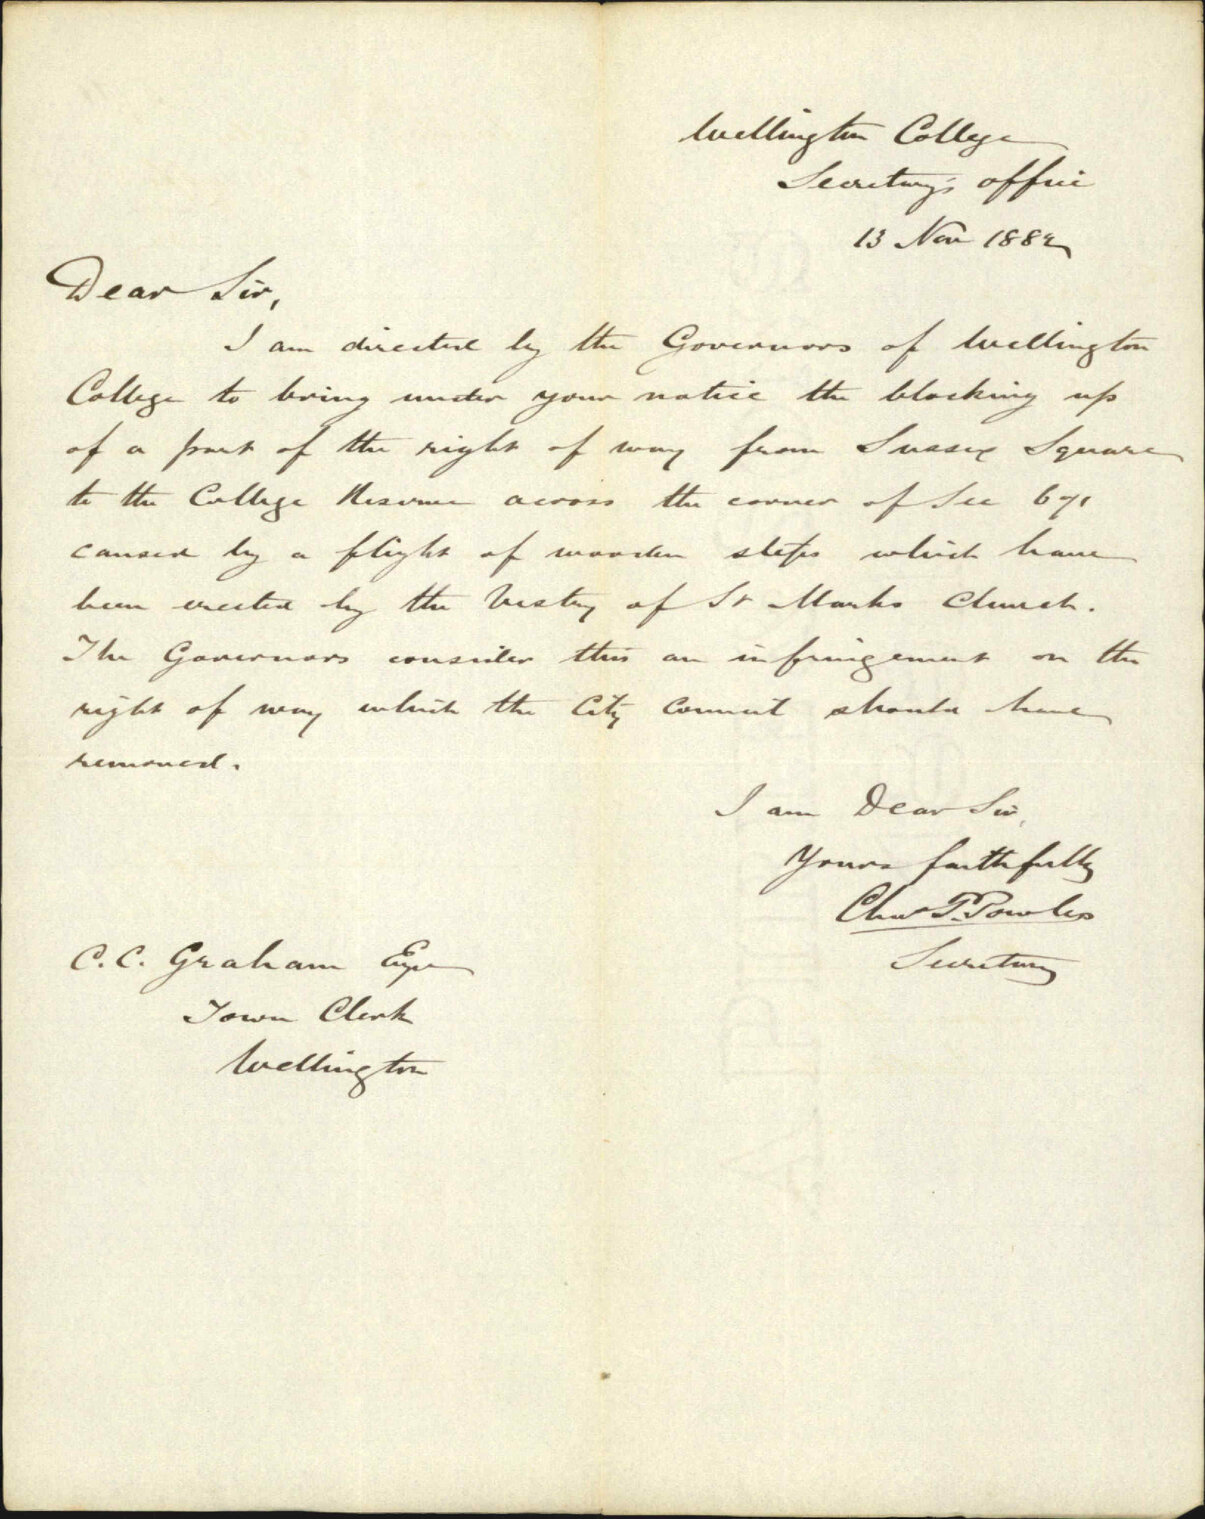 Wellington College
Secretary's office
13 Nov 1882
Dear Sir,
I am directed by the Governors of Wellington
College to bring under your notice the blocking up
of a part of the right of way from Sussex Square
to the College Reserve across the corner of Sec 671
caused by a flight of wooden steps which have
been erected by the Vestry of St Marks Church.
The Governors consider this an infringement on the
right of way which the City Council should have
removed.
I am Dear Sir,
Yours faithfully
Chas P. Powles
Secretary
C. C. Graham Esqre
Town Clerk
Wellington